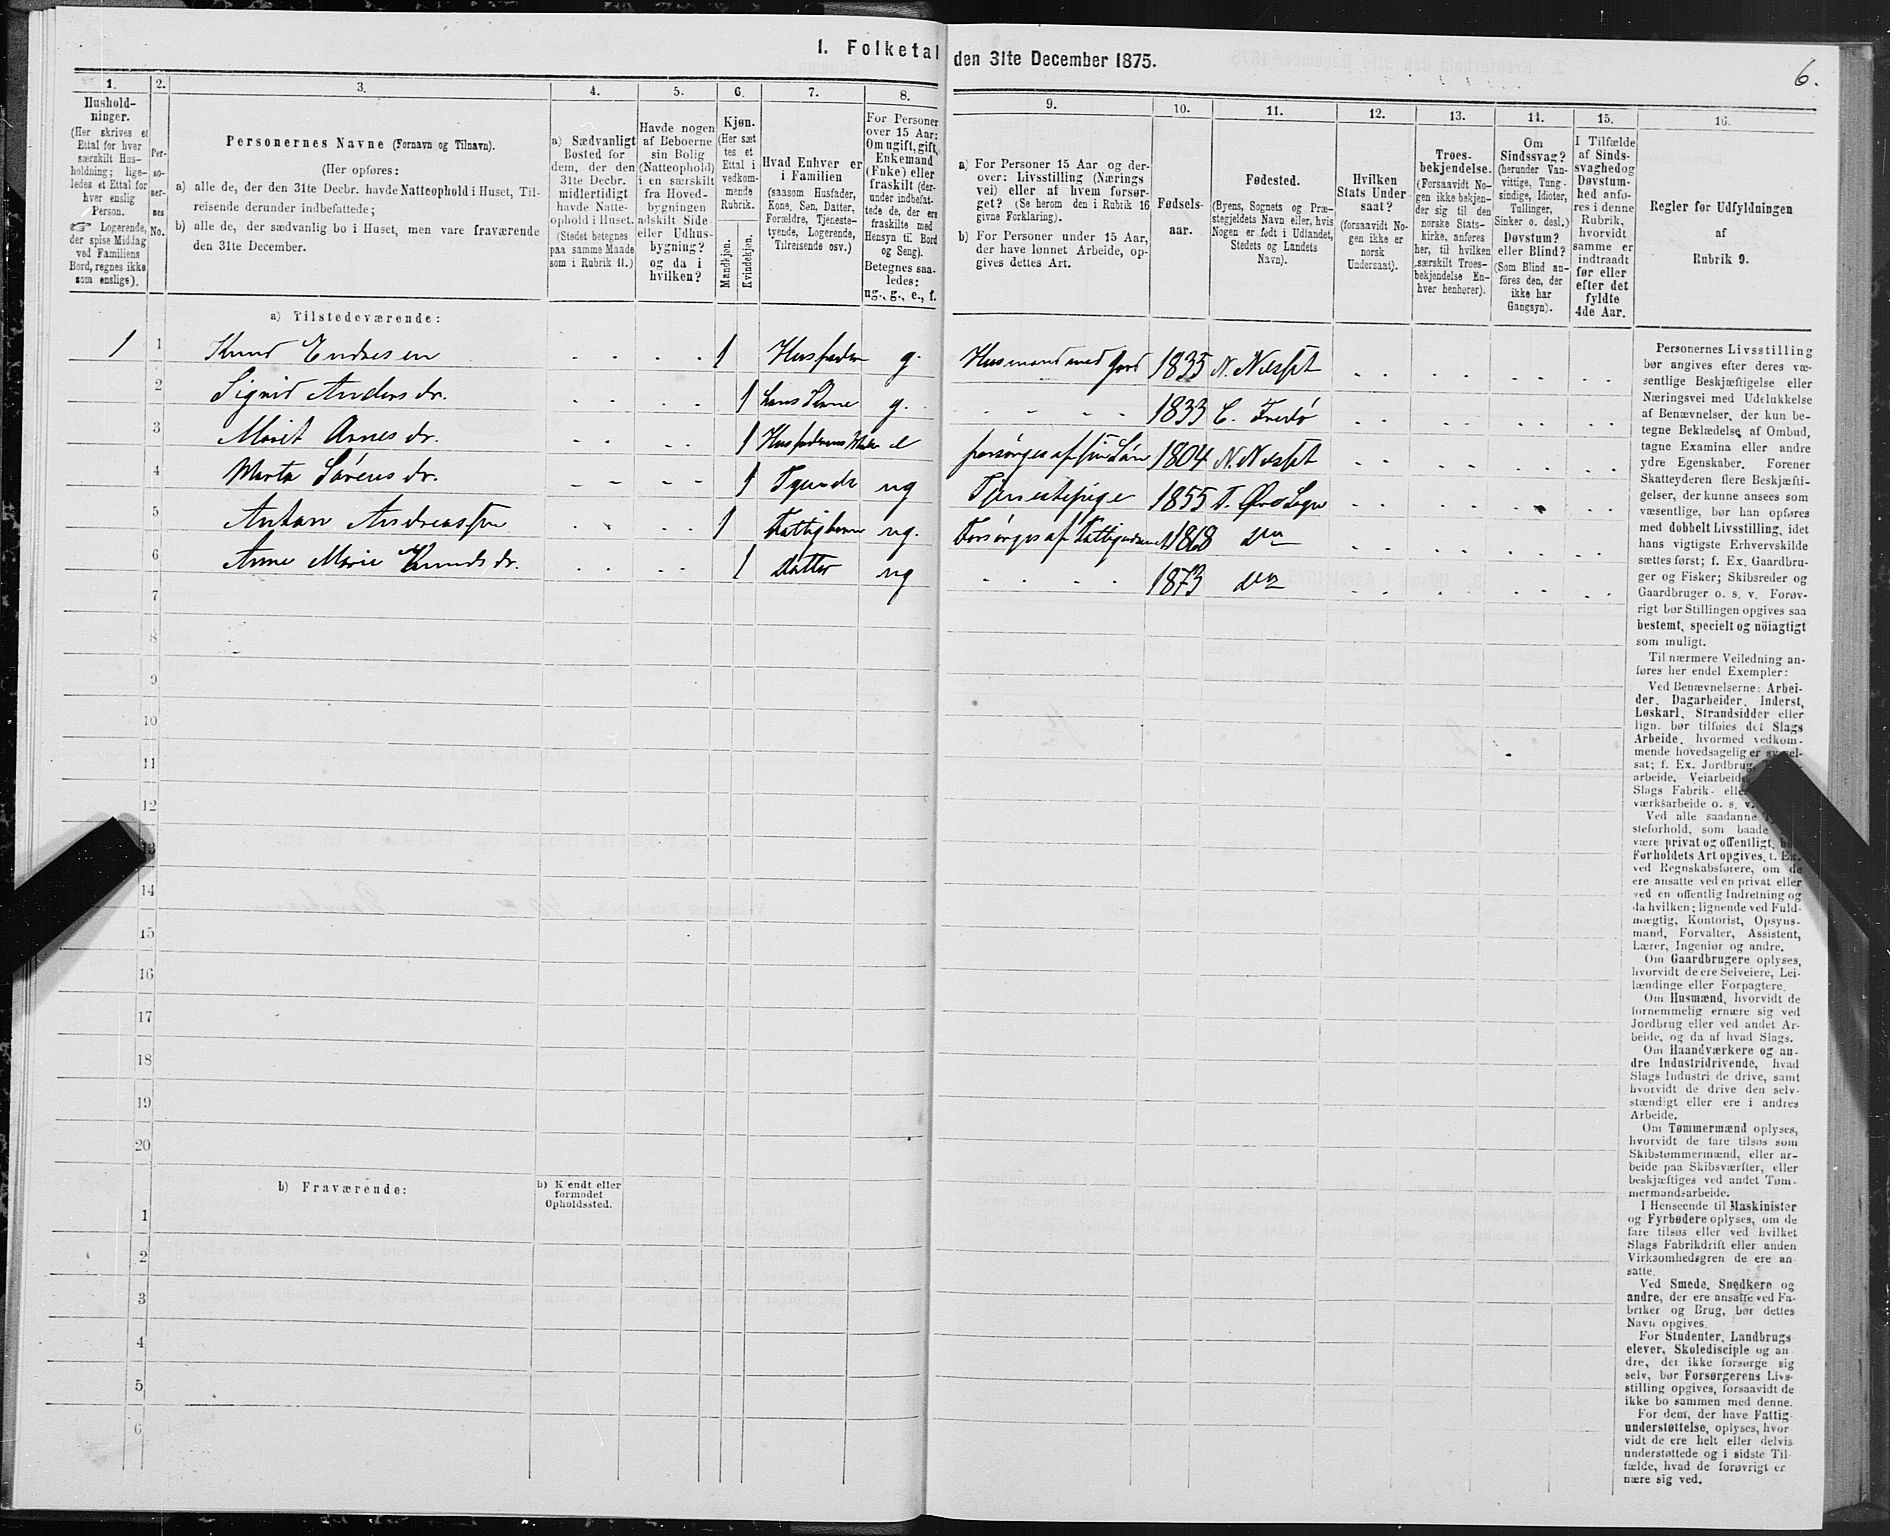 I. Folketal den 31te December 1875.
6.
1.
Hushold-
ninger.
(Her skrives et
Ettal for hver
særskilt Hus-
holdning; lige-
ledes et Ettal for
hver enslig
Person.
☞ Logerende,
der spise Middag
ved Familiens
Bord, regnes ikke
som enslige).
2.
Per-
so-
ner-
nes
No.
3.
Personernes Navne (Fornavn og Tilnavn).
(Her opføres:
a) alle de, der den 31te Decbr. havde Natteophold i Huset, Til-
reisende derunder indbefattede;
b) alle de, der sædvanlig bo i Huset, men vare fraværende
den 31te December.
4.
a) Sædvanligt
Bosted for
dem, der den
31te Decbr.
midlertidigt
havde Natte-
ophold i Huset.
(Stedet betegnes
paa samme Maade
som i Rubrik 11.)
5.
Havde nogen
af Beboerne
sin Bolig
(Natteophold)
i en særskilt
fra Hoved-
bygningen
adskilt Side
eller Udhus-
bygning?
og da i
hvilken?
6.
Kjøn.
(Her sæt
tes et
Ettal i
vedkom-
mende
Rubrik.
Mandkjøn.
Kvindekjøn.
7.
Hvad Enhver er
i Familien
(saasom Husfader,
Kone, Søn, Datter,
Forældre, Tjeneste-
tyende, Logerende,
Tilreisende osv.)
8.
For Personer
over 15 Aar:
Om ugift, gift,
Enkemand
(Enke) eller
fraskilt (der-
under indbefat-
tede de, der ere
fraskilte med
Hensyn til Bord
og Seng).
Betegnes saa-
ledes:
ug., g., e., f.
9.
a) For Personer 15 Aar og der-
over: Livsstilling (Nærings
vei) eller af hvem forsør-
get? (Se herom den i Rubrik 16
givne Forklaring).
b) For Personer under 15 Aar,
der have lønnet Arbeide, op-
gives dettes Art.
10.
Fødsels-
aar.
11.
Fødested.
(Byens, Sognets og Præ-
stegjeldets Navn eller, hvis
Nogen er født i Udlandet,
Stedets og Landets
Navn).
12.
Hvilken
Stats Under-
saat?
(forsaavidt No-
gen ikke er
norsk
Undersaat).
13.
Troes-
bekjendelse.
(Forsaavidt No-
gen ikke bekjen-
der sig til den
norske Stats-
kirke, anføres
her, til hvilken
særskilt Troes-
bekjendelse En-
hver henhører).
14.
Om
Sindssvag?
(herunder Van-
vittige, Tung-
sindige, Idioter,
Tullinger,
Sinker o. desl.)
Døvstum?
eller Blind?
(Som Blind an-
føres den, der
ikke har
Gangsyn).
15.
I Tilfælde
af Sinds-
svaghed og
Døvstum-
hed anfø-
res i denne
Rubrik,
hvorvidt
samme er
indtraadt
før eller
efter det
fyldte
4de Aar.
16.
Regler for Udfyldningen
af
Rubrik 9.
a) Tilstedeværende:
1 1 Knud Endresen . . . . 1 Husfader g. Husmand med Jord 1835 N. Nesset . . . . . . . .
2 Sigrid Anders dr. . . . . 1 hans Kone g. . . . . 1833 C. Fredø . . . . . . . .
3 Marit Arnes dr. . . . . 1 Husfaderens Moder e forsørges af sin Søn 1804 N. Nesset . . . . . . . .
4 Marta Sørens dr. . . . . 1 Tyende ug Tjenestepige 1855 . . . . . . . .
5 Anton Andreassen . . . . 1 Fattigbarn ug. Forsørges af 1868 do . . . . . . . .
6 Anne Marie Knuds dr. . . . . 1 datter ug . . . . 1873 do . . . . . . . .
7
8
9
10
11
12
13
14
15
16
17
18
19
20
b) Fraværende:
b) Kendt eller
formodet
Opholdssted.
1
2
3
4
5
6
Personernes Livsstilling
bør angives efter deres væ-
sentlige Beskjæftigelse eller
Næringsvei med Udelukkelse
af Benævnelser, der kun be-
tegne Beklædelse af Ombud,
tagne Examina eller andre
ydre Egenskaber. Forener
Skatteyderen flere Beskjæfti-
gelser, der kunne ansees som
væsentlige, bør han opføres
med dobbelt Livsstilling, idet
hans vigtigste Erhvervskilde
sættes først; f. Ex. Gaardbru-
ger og Fisker; Skibsreder og
Gaardbruger o. s. v. Forøv-
rigt bør Stillingen opgives saa
bestemt, specielt og nöiagtigt
som muligt.
Til nærmere Veiledning an-
føres her endel Exempler:
Ved Benævnelserne: Arbei-
der, Dagarbeider, Inderst,
Løskarl, Strandsidder eller
lign. bør tilføies det Slags
Arbeide, hvormed vedkom-
mende hovedsagelig er syssel-
sat; f. Ex. Jordbrug,
arbeide, Veiarbeide,
Slags Fabrik- eller
værksarbeide o. s. v.
Ved alle saadanne
steforhold, som baade
være privat og offentligt, bør
Forholdets Art opgives, t. Ex.
ved Regnskabsførere, om de
ere ansatte ved en privat eller
ved en offentlig Indretning og
da hvilken; lignende ved Fuld-
mægtig, Kontorist, Opsyns-
mand, Forvalter, Assistent,
Lærer, Ingeniør og andre.
Om Gaardbrugere oplyses,
hvorvidt de ere Selveiere, Lei-
lændinge eller Forpagtere.
Om Husmænd, hvorvidt de
fornemmelig ernære sig ved
Jordbrug eller ved andet Ar-
beide, og da af hvad Slags.
Om Haandværkere og an-
dre Industridrivende, hvad
Slags Industri de drive, samt
hvorvidt de drive den selv-
stændigt eller ere i andres
Arbeide.
Om Tømmermænd oplyses,
hvorvidt de fare tilsøs som
Skibstømmermænd, eller ar-
beide paa Skibsværfter, eller
beskjæftiges ved andet Tøm-
mermandsarbeide.
I Henseende til Maskinister
og Fyrbødere oplyses, om de
fare tilsøs eller ved hvilket
Slags Fabrikdrift eller anden
Virksomhedsgren de ere an-
satte.
Ved Smede, Snedkere og
andre, der ere ansatte ved Fa-
briker og Brug, bør dettes
Navn opgives.
For Studenter, Landbrugs
elever, Skoledisciple og an
dre, der ikke forsørge sig
selv, bør Forsørgerens Livs-
stilling opgives, forsaavidt de
ikke bo sammen med denne.
For dem, der have Fattig-
understøttelse, oplyses, hvor
vidt de ere helt eller delvis
understøttede og i sidste Til-
fælde, hvad de forøvrigt er
nære sig ved.